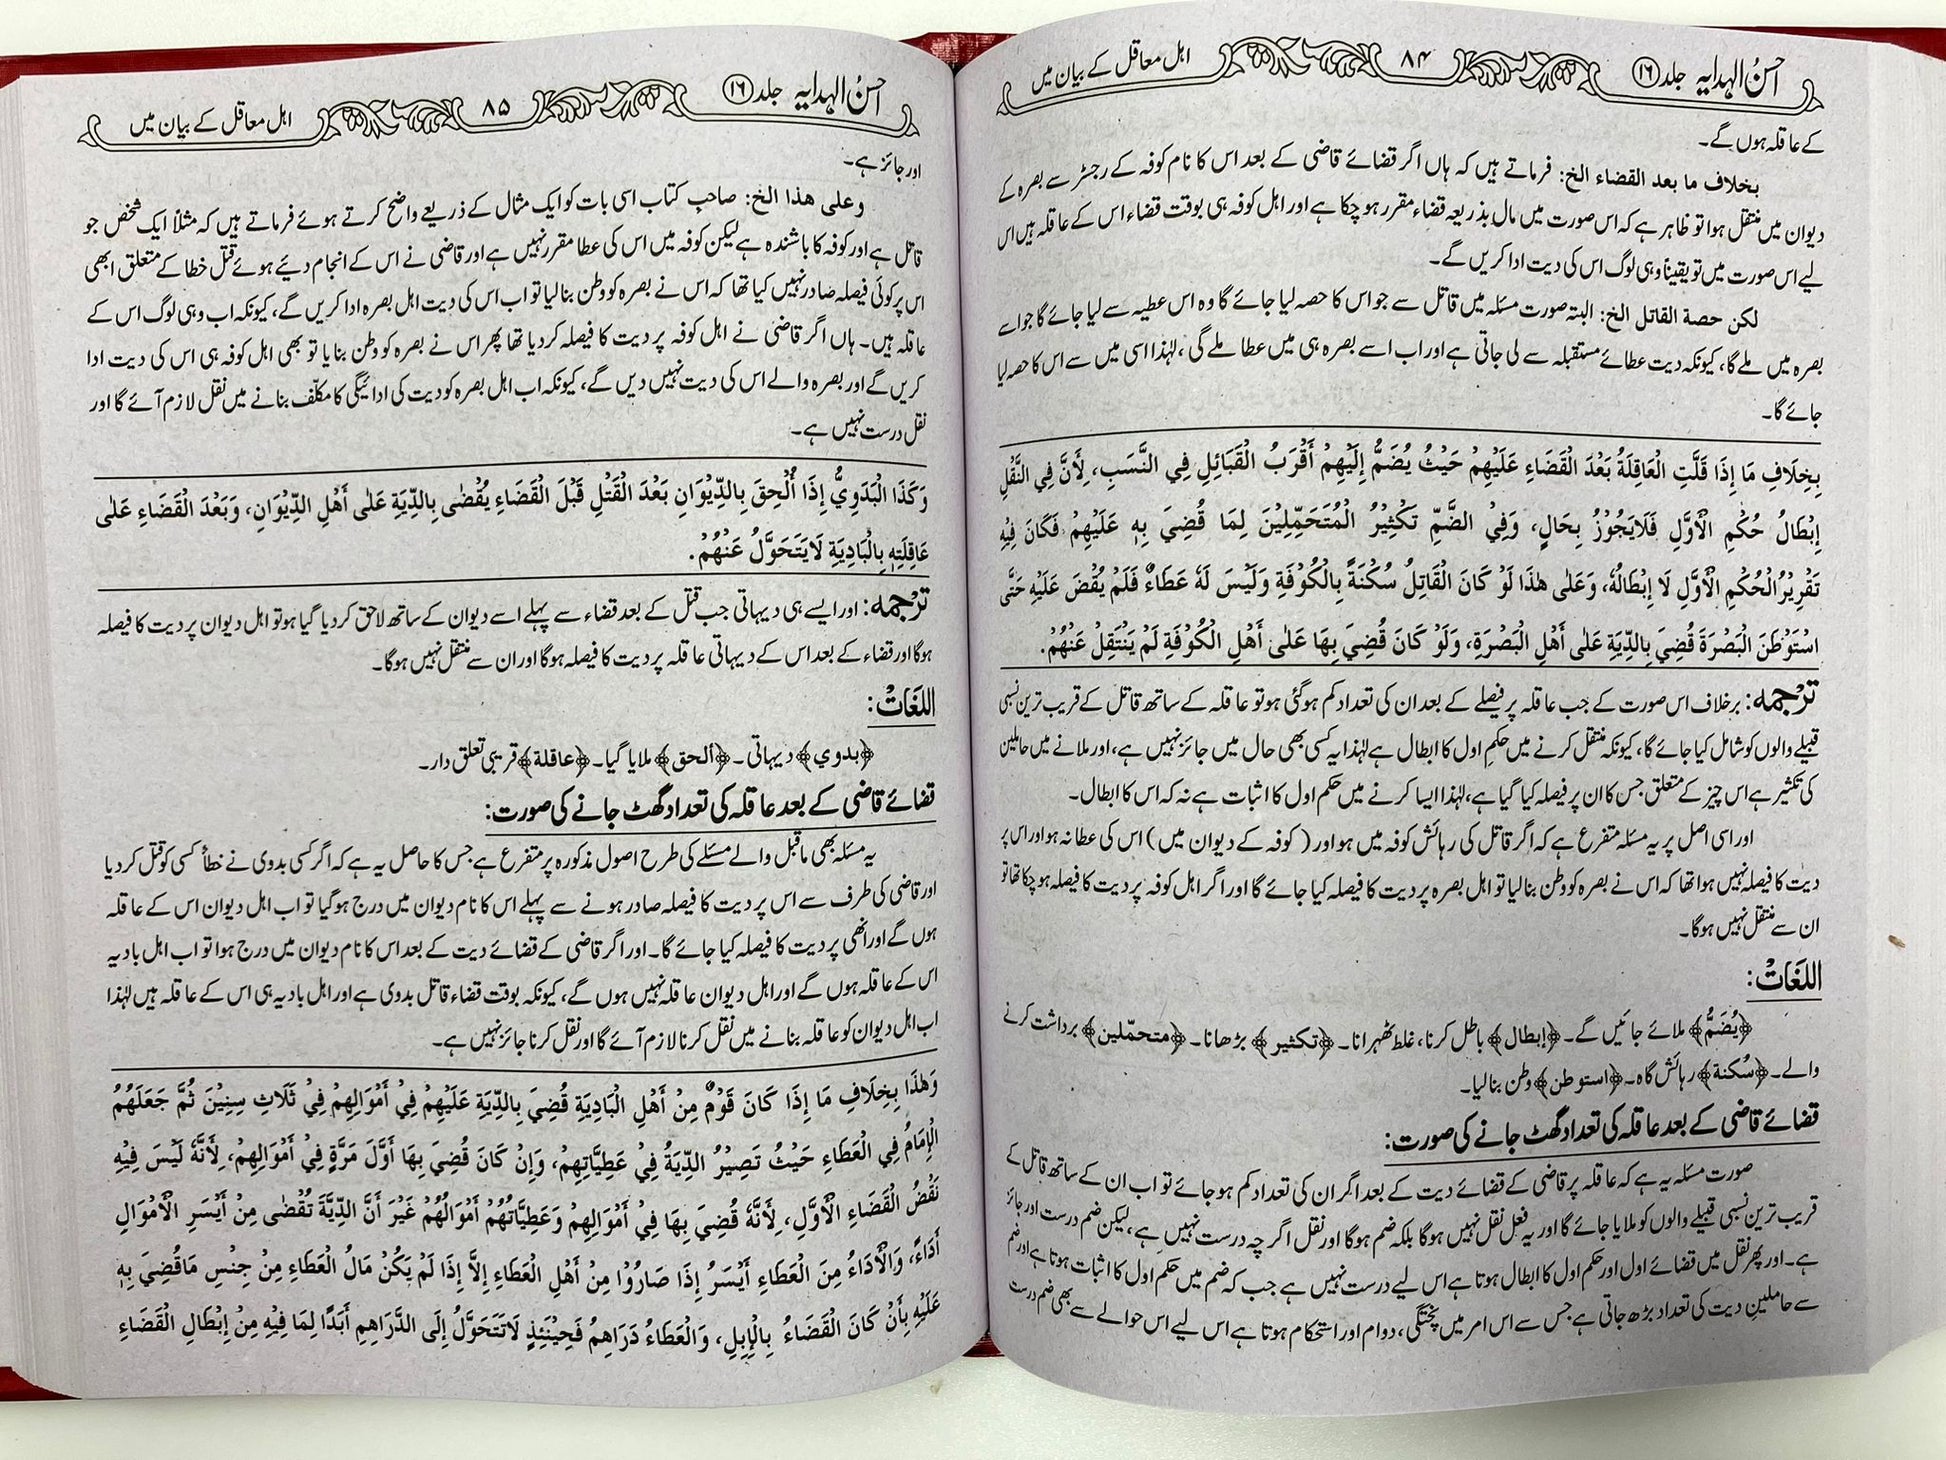 احسن الہدایہ جلد ۱۶ ۸۴ اہل معاقل کے بیان میں
کے عاقلہ ہوں گے۔
بخلاف ما بعد القضاء الخ: فرماتے ہیں کہ ہاں اگر قضائے قاضی کے بعد اس کا نام کوفہ کے رجسٹر سے بصرہ کے
دیوان میں منتقل ہوا تو ظاہر ہے کہ اس صورت میں مال بذریعہ قضاء مقرر ہو چکا ہے اور اہل کوفہ ہی بوقت قضاء اس کے عاقلہ ہیں اس
لیے اس صورت میں تو یقیناً وہی لوگ اس کی دیت ادا کریں گے۔
لکن حصة القاتل الخ: البتہ صورت مسئلہ میں قاتل سے جو اس کا حصہ لیا جائے گا وہ اس عطیہ سے لیا جائے گا جو اسے
بصرہ میں ملے گا، کیونکہ دیت عطائے مستقبلہ سے لی جاتی ہے اور اب اسے بصرہ ہی میں عطا ملے گی، لہٰذا اسی میں سے اس کا حصہ لیا
جائے گا۔
بِخِلَافِ مَا إِذَا قَلَّتِ الْعَاقِلَةُ بَعْدَ الْقَضَاءِ عَلَيْهِمْ حَيْثُ يُضَمُّ إِلَيْهِمْ أَقْرَبُ الْقَبَائِلِ فِي النَّسَبِ، لِأَنَّ فِي النَّقْلِ
إِبْطَالُ حُكْمِ الْأَوَّلِ فَلَايَجُوْزُ بِحَالٍ، وَفِيْ الضَّمِّ تَكْثِيْرُ الْمُتَحَمِّلِيْنَ لِمَا قُضِيَ بِهٖ عَلَيْهِمْ فَكَانَ فِيْهِ
تَقْرِيْرُ الْحُكْمِ الْأَوَّلِ لَا إِبْطَالُهٗ، وَعَلٰى هٰذَا لَوْ كَانَ الْقَاتِلُ سُكْنَةً بِالْكُوْفَةِ وَلَيْسَ لَهٗ عَطَاءٌ فَلَمْ يُقْضَ عَلَيْهِ حَتّٰى
اسْتَوْطَنَ الْبَصْرَةَ قُضِيَ بِالدِّيَةِ عَلٰى أَهْلِ الْبَصْرَةِ، وَلَوْ كَانَ قُضِيَ بِهَا عَلٰى أَهْلِ الْكُوْفَةِ لَمْ يَنْتَقِلْ عَنْهُمْ.
ترجمہ: برخلاف اس صورت کے جب عاقلہ پر فیصلے کے بعد ان کی تعداد کم ہوگئی ہو تو عاقلہ کے ساتھ قاتل کے قریب ترین نسبی
قبیلے والوں کو شامل کیا جائے گا، کیونکہ منتقل کرنے میں حکمِ اول کا ابطال ہے لہٰذا یہ کسی بھی حال میں جائز نہیں ہے، اور ملانے میں حاملین
کی تکثیر ہے اس چیز کے متعلق جس کا ان پر فیصلہ کیا گیا ہے، لہٰذا ایسا کرنے میں حکم اول کا اثبات ہے نہ کہ اس کا ابطال۔
اور اسی اصل پر یہ مسئلہ متفرع ہے کہ اگر قاتل کی رہائش کوفہ میں ہو اور (کوفہ کے دیوان میں) اس کی عطا نہ ہو اور اس پر
دیت کا فیصلہ نہیں ہوا تھا کہ اس نے بصرہ کو وطن بنالیا تو اہل بصرہ پر دیت کا فیصلہ کیا جائے گا اور اگر اہل کوفہ پر دیت کا فیصلہ ہو چکا تھا تو
ان سے منتقل نہیں ہوگا۔
اللغات:
﴿يُضَمُّ﴾ ملائے جائیں گے۔ ﴿إبطال﴾ باطل کرنا، غلط ٹھہرانا۔ ﴿تکثیر﴾ بڑھانا۔ ﴿متحمّلین﴾ برداشت کرنے
والے۔ ﴿سُکنة﴾ رہائش گاہ۔ ﴿استوطن﴾ وطن بنالیا۔
قضائے قاضی کے بعد عاقلہ کی تعداد گھٹ جانے کی صورت:
صورت مسئلہ یہ ہے کہ عاقلہ پر قاضی کے قضائے دیت کے بعد اگر ان کی تعداد کم ہو جائے تو اب ان کے ساتھ قاتل کے
قریب ترین نسبی قبیلے والوں کو ملایا جائے گا اور یہ فعل نقل نہیں ہوگا بلکہ ضم ہوگا اور نقل اگرچہ درست نہیں ہے، لیکن ضم درست اور جائز
ہے۔ اور پھر نقل میں قضائے اول اور حکم اول کا ابطال ہوتا ہے اس لیے درست نہیں ہے جب کہ ضم میں حکم اول کا اثبات ہوتا ہے اور ضم
سے حاملینِ دیت کی تعداد بڑھ جاتی ہے جس سے اس امر میں پختگی، دوام اور استحکام ہوتا ہے اس لیے اس حوالے سے بھی ضم درست
احسن الہدایہ جلد ۱۶ ۸۵ اہل معاقل کے بیان میں
اور جائز ہے۔
وعلی ھذا الخ: صاحب کتاب اسی بات کو ایک مثال کے ذریعے واضح کرتے ہوئے فرماتے ہیں کہ مثلاً ایک شخص جو
قاتل ہے اور کوفہ کا باشندہ ہے لیکن کوفہ میں اس کی عطا مقرر نہیں ہے اور قاضی نے اس کے انجام دیئے ہوئے قتل خطا کے متعلق ابھی
اس پر کوئی فیصلہ صادر نہیں کیا تھا کہ اس نے بصرہ کو وطن بنالیا تو اب اس کی دیت اہل بصرہ ادا کریں گے، کیونکہ اب وہی لوگ اس کے
عاقلہ ہیں۔ ہاں اگر قاضی نے اہل کوفہ پر دیت کا فیصلہ کردیا تھا پھر اس نے بصرہ کو وطن بنایا تو بھی اہل کوفہ ہی اس کی دیت ادا
کریں گے اور بصرہ والے اس کی دیت نہیں دیں گے، کیونکہ اب اہل بصرہ کو دیت کی ادائیگی کا مکلف بنانے میں نقل لازم آئے گا اور
نقل درست نہیں ہے۔
وَكَذَا الْبَدَوِيُّ إِذَا أُلْحِقَ بِالدِّيْوَانِ بَعْدَ الْقَتْلِ قَبْلَ الْقَضَاءِ يُقْضٰى بِالدِّيَةِ عَلٰى أَهْلِ الدِّيْوَانِ، وَبَعْدَ الْقَضَاءِ عَلٰى
عَاقِلَتِهٖ بِالْبَادِيَةِ لَايَتَحَوَّلُ عَنْهُمْ.
ترجمہ: اور ایسے ہی دیہاتی جب قتل کے بعد قضاء سے پہلے اسے دیوان کے ساتھ لاحق کر دیا گیا ہو تو اہل دیوان پر دیت کا فیصلہ
ہوگا اور قضاء کے بعد اس کے دیہاتی عاقلہ پر دیت کا فیصلہ ہوگا اور ان سے منتقل نہیں ہوگا۔
اللغات:
﴿بدوي﴾ دیہاتی۔ ﴿اُلحق﴾ ملایا گیا۔ ﴿عاقلة﴾ قریبی تعلق دار۔
قضائے قاضی کے بعد عاقلہ کی تعداد گھٹ جانے کی صورت:
یہ مسئلہ بھی ماقبل والے مسئلے کی طرح اصول مذکورہ پر متفرع ہے جس کا حاصل یہ ہے کہ اگر کسی بدوی نے خطأ کسی کو قتل کردیا
اور قاضی کی طرف سے اس پر دیت کا فیصلہ صادر ہونے سے پہلے اس کا نام دیوان میں درج ہوگیا تو اب اہل دیوان اس کے عاقلہ
ہوں گے اور انھی پر دیت کا فیصلہ کیا جائے گا۔ اور اگر قاضی کے قضائے دیت کے بعد اس کا نام دیوان میں درج ہوا تو اب اہل بادیہ
اس کے عاقلہ ہوں گے اور اہل دیوان عاقلہ نہیں ہوں گے، کیونکہ بوقت قضاء قاتل بدوی ہے اور اہل بادیہ ہی اس کے عاقلہ ہیں لہٰذا
اب اہل دیوان کو عاقلہ بنانے میں نقل کرنا لازم آئے گا اور نقل کرنا جائز نہیں ہے۔
وَهٰذَا بِخِلَافِ مَا إِذَا كَانَ قَوْمٌ مِنْ أَهْلِ الْبَادِيَةِ قُضِيَ بِالدِّيَةِ عَلَيْهِمْ فِيْ أَمْوَالِهِمْ فِيْ ثَلَاثِ سِنِيْنَ ثُمَّ جَعَلَهُمُ
الْإِمَامُ فِي الْعَطَاءِ حَيْثُ تَصِيْرُ الدِّيَةُ فِيْ عَطِيَّاتِهِمْ، وَإِنْ كَانَ قُضِيَ بِهَا أَوَّلَ مَرَّةٍ فِيْ أَمْوَالِهِمْ، لِأَنَّهٗ لَيْسَ فِيْهِ
نَقْضُ الْقَضَاءِ الْأَوَّلِ، لِأَنَّهٗ قُضِيَ بِهَا فِيْ أَمْوَالِهِمْ وَعَطِيَّاتُهُمْ أَمْوَالُهُمْ غَيْرَ أَنَّ الدِّيَةَ تُقْضٰى مِنْ أَيْسَرِ الْأَمْوَالِ
أَدَاءً، وَالْأَدَاءُ مِنَ الْعَطَاءِ أَيْسَرُ إِذَا صَارُوْا مِنْ أَهْلِ الْعَطَاءِ إِلَّا إِذَا لَمْ يَكُنْ مَالُ الْعَطَاءِ مِنْ جِنْسِ مَاقُضِيَ بِهٖ
عَلَيْهِ بِأَنْ كَانَ الْقَضَاءُ بِالْإِبِلِ، وَالْعَطَاءُ دَرَاهِمُ فَحِيْنَئِذٍ لَاتَتَحَوَّلُ إِلَى الدَّرَاهِمِ أَبَدًا لِمَا فِيْهِ مِنْ إِبْطَالِ الْقَضَاءِ